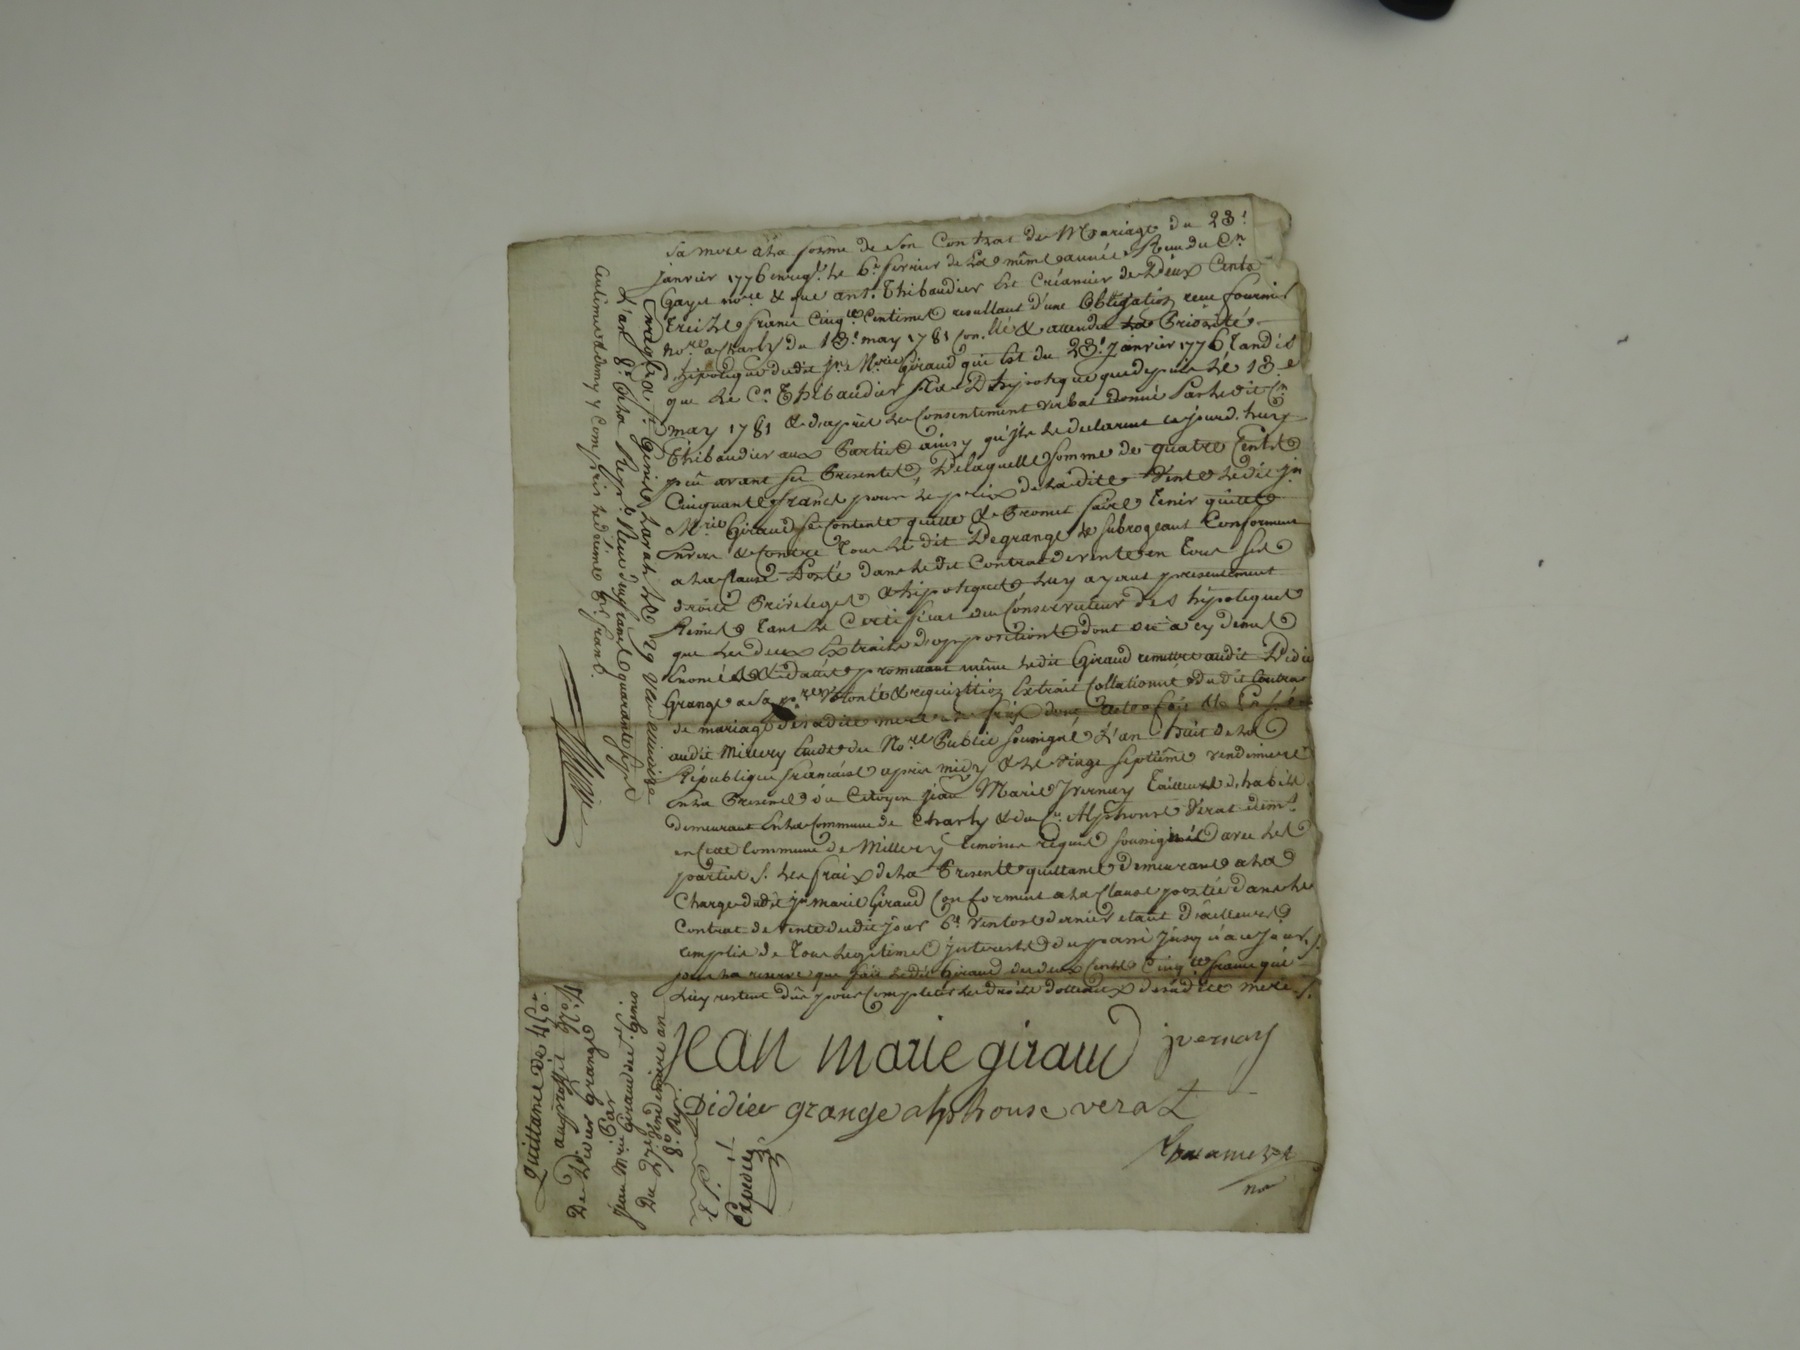 sa mere a la forme de son Contrat de Mariage du 23.e
janvier 1776 enreg.é le 6.e fevrier de la même année Reçu du C.en
Gayet no.re & que ant. Thibaudier est Créancier de Deux Cents
treize francs Cinq.te Centimes resultant d'une Obligation reçue fournier
no.re a Charly du 13.e may 1781 Con.llé & attendu la Priorité
d'hipoteque dudit j.n M.rie Giraud qui Est du 23.e janvier 1776 tandis
que le C.n Thibaudier n'a D'hipoteque que depuis le 13.e
may 1781 & d'après le Consentement verbal donné Par le dit C.n
Thibaudier aux Parties ainsy qu'ils le declarent ce jourd'huy
peu avant ses Presentes, De laquelle somme de quatre Cents
Cinquante francs pour le prix de la dite Vente le dit j.n
M.rie Giraud se Contente quitte & Promet faire tenir quitte
Envers & Contre tous le dit Degrange le subrogeant Conformement
a la Clause Porté dans le dit Contrat de vente en tous ses
droits Privileges & hipoteques luy ayant presentement
Remis tant le Certificat du Conservateur des hipoteques
que les deux Extraits d'oppositions dont est cy devant
Enoncé & datté promettant même le dit Giraud remettre audit Didier
Grange a sa p.re Volonté & requisition Extrait Collationné du dit Contrat
de mariage de sadite mere a ses fraix dont acte fait &
audit Millery Etude du No.re Public sousigné L'an huit de la
République francaise après midy & le vingt septième vendemiere
En la Presence du Citoyen jean Marie Jvernay tailleur d'habits
demeurant En la Commune de Charly & du C.n Alphonse Vérat dem.t
en Cette Commune de Millery temoins requis sousignés avec les
parties S. les fraix de la Presente quittance demeurant a la
Charge dudit j.n marie Giraud Conforment a la Clause portée dans le
Contrat de vente dudit jour 6.e Ventose dernier etant D'ailleurs
remplie de tous legitimes jnterests du passé jusqu'a ce jour S.
sous la reserve que fait ledit Giraud des deux Cents Cinq.te francs qui
Luy restent dûs pour Completter les droits dotteaux de sadite mere S.
Jean marie giraud jvernay
Didier grange alphonse verat
no.re
Enreg.tré a S.t Genis Laval le 29 Vendemiaire
L'an 8.e de la Rep.e Reçu deux francs quarante sept
Centimes & demy y Compris le dixieme p.r franc
Quittance de 450.#
au proffit
De Didier Grange
Par
jean M.rie Giraud de S.t Genis
Du 27 Vendemiaire an
8.e Rep.
Expediée